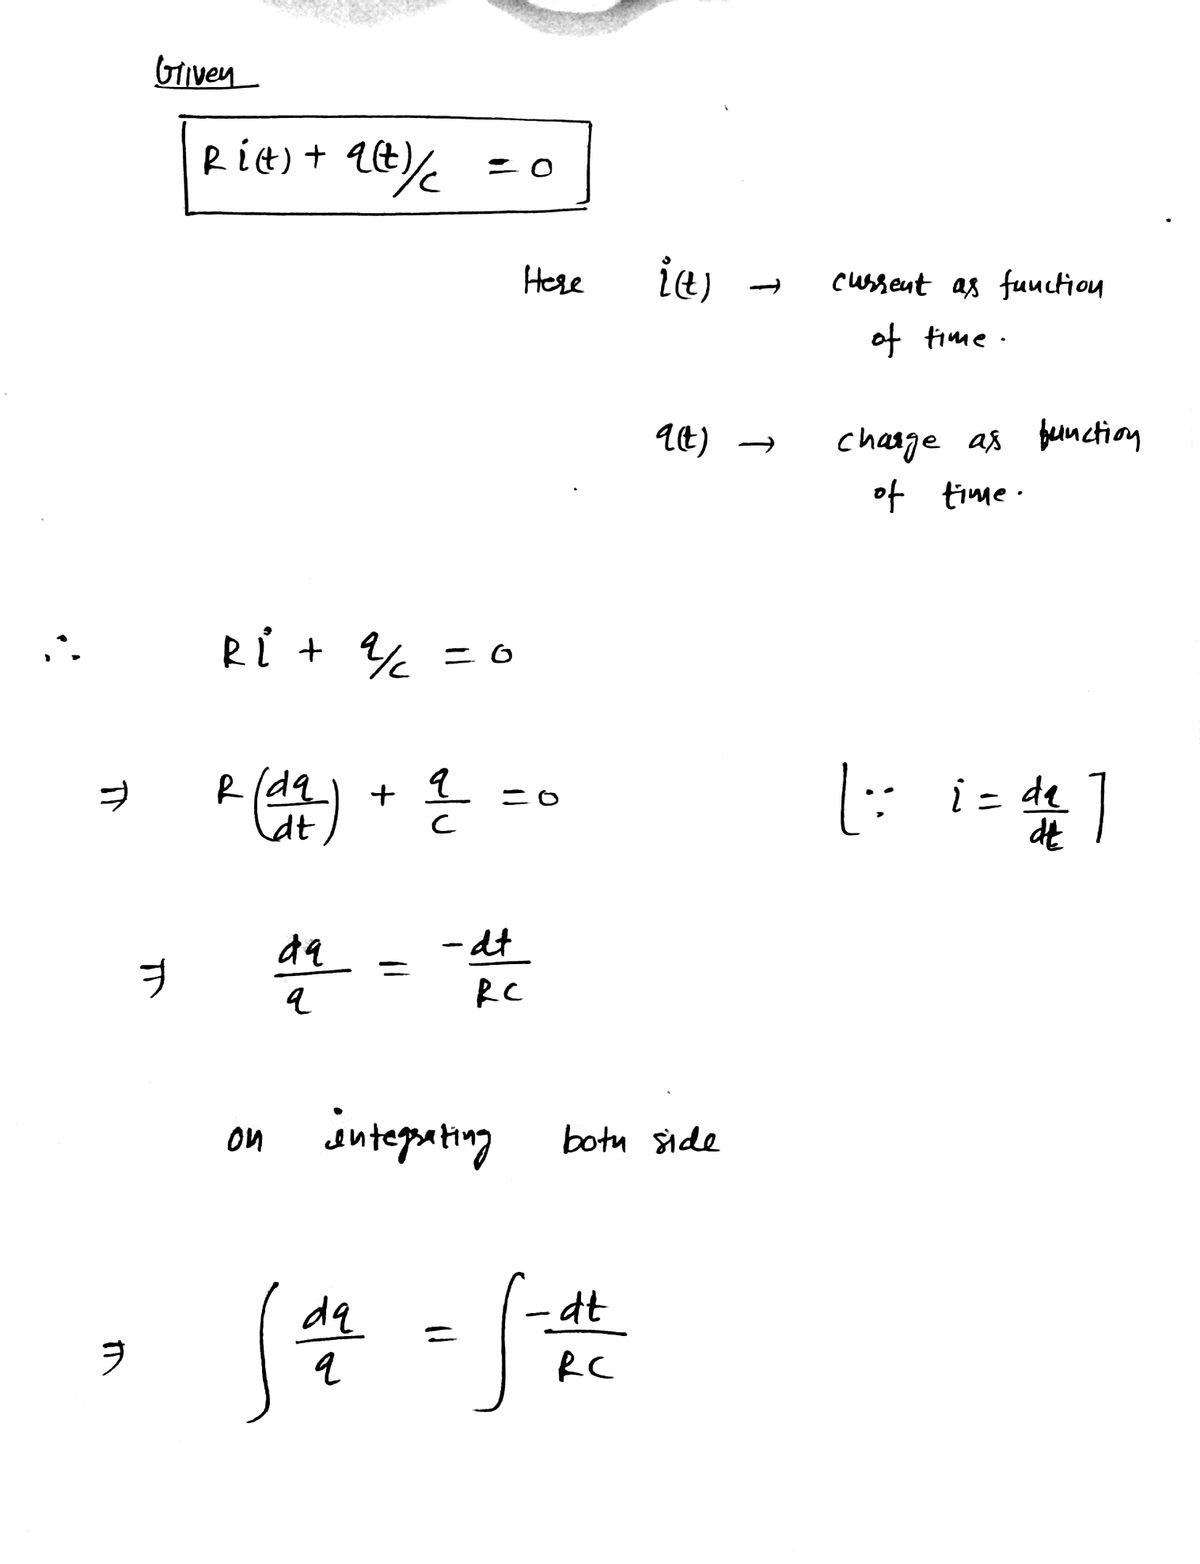 Given
R i(t) + q(t)/c = 0
Here i(t) → current as function
of time.
q(t) → charge as function
of time.
∴ Ri + q/c = 0
⇒ R(dq/dt) + q/c = 0 [∵ i = dq/dt]
⇒ dq/q = -dt/RC
on integrating both side
⇒ ∫ dq/q = ∫ -dt/RC